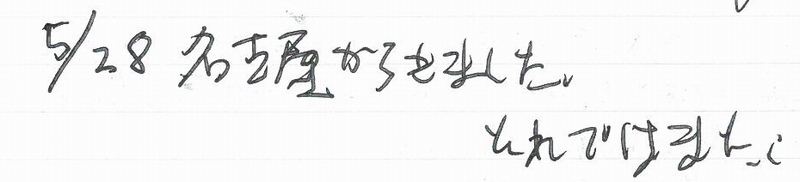 5/28 名古屋からきました。
それではまた。